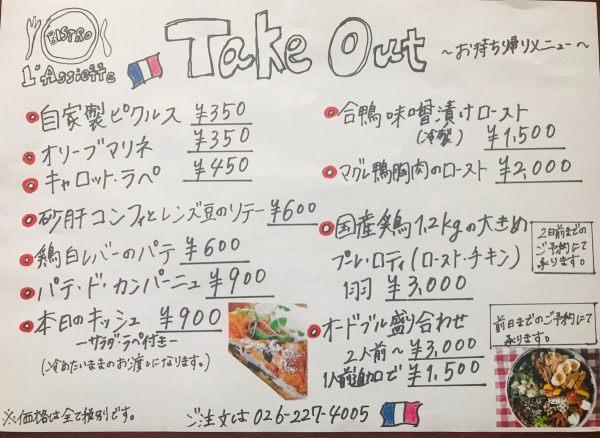 BISTRO
L'Assiette
Take Out
～お持ち帰りメニュー～
自家製ピクルス ¥350
オリーブマリネ ¥350
キャロット・ラペ ¥450
砂肝コンフィとレンズ豆のソテー ¥600
鶏白レバーのパテ ¥600
パテ・ド・カンパーニュ ¥900
本日のキッシュ ¥900
ーサラダ・ラペ付きー
(冷めたいままのお渡しになります。)
※価格は全て税別です。
合鴨味噌漬けロースト
(冷製) ¥1,500
マグレ鴨胸肉のロースト ¥2,000
国産鶏1,2kgの大きめ
プーレ・ロティ(ロースト・チキン)
1羽 ¥3,000
2日前までの
ご予約にて
承ります。
オードブル盛り合わせ
2人前～ ¥3,000
1人前追加で ¥1,500
前日までのご予約にて
承ります。
ご注文は 026-227-4005